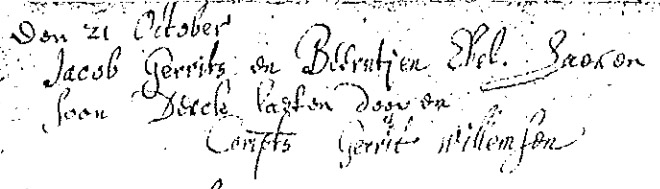 Den 21 October
Jacob Gerrits en Beerntjen Ehel. haeren
soon Derck laeten doopen
Comp.ts Gerrit Willemsen